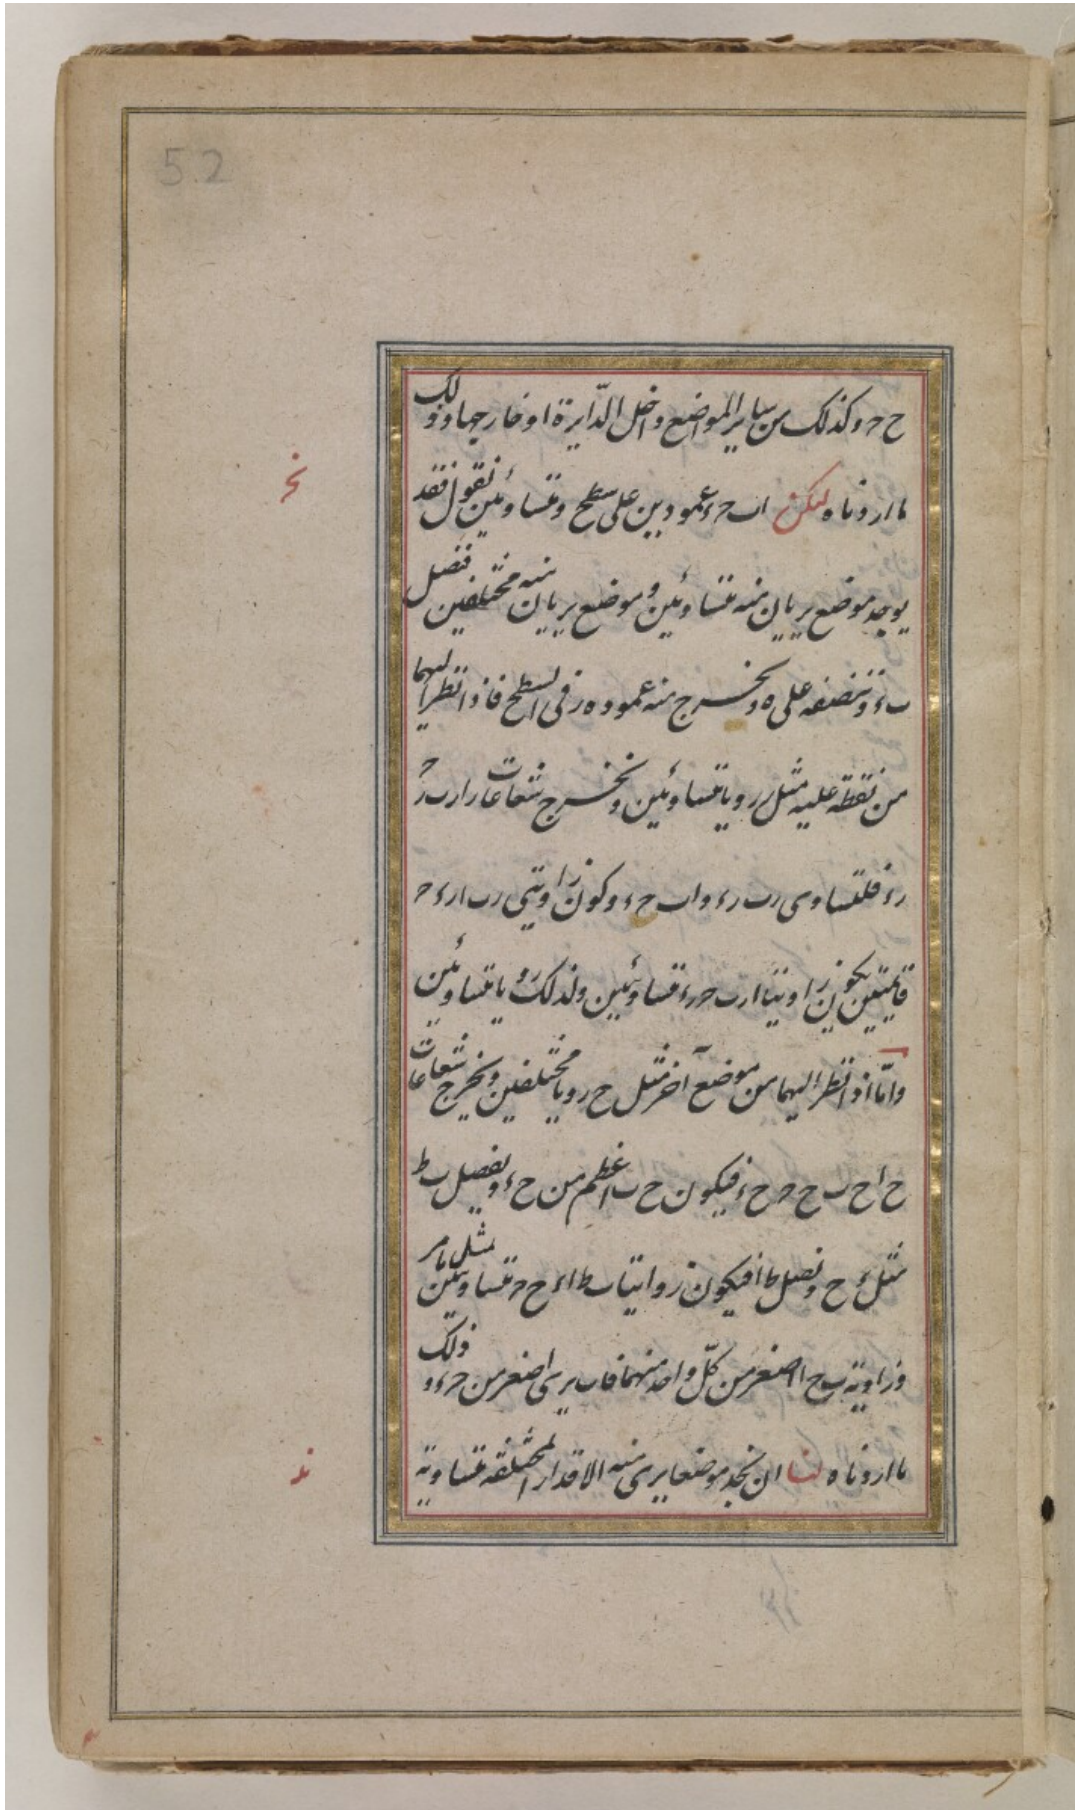 52
ح ح وكذلك من ساير المواضع داخل الدّايرة او خارجها وذلك
ما اردناه ليكن اب حء عمودين على سطح ومتساويين نقول فقد
نج
يوجد موضع يريان منه متساويين وموضع يريان منه مختلفين فنصل
بء وننصفه على ه ونخرج منه عمود ه ز فى السطح فاذا نظر اليهما
من نقطة عليه مثل ر رويا متساويين ونخرج شعاعات را رب رح
رء فلتساوى رب رء واب حء وكون زاويتى رب ا رء ح
قايمتين يكون زاويتا ارب حرء متساويين ولذلك رويا متساويين
وامّا اذا نظر اليهما من موضع آخر مثل ح رويا مختلفين ونخرج شعاعات
ح ا ح ب ح ح ح ء فيكون ح ب اعظم من ح ء ونفصل ب ط
مثل ء ح ونصل ط ا فيكون زوايتا ب ط ا ء ح ح متساويتين مثل ما مر
وزاوية ب ح ا اصغر من كلّ واحد منهما فاب يرى اصغر من حء وذلك
ما اردناه لنا ان نجد موضعا يرى منه الاقدار المختلفه متساوية
ند